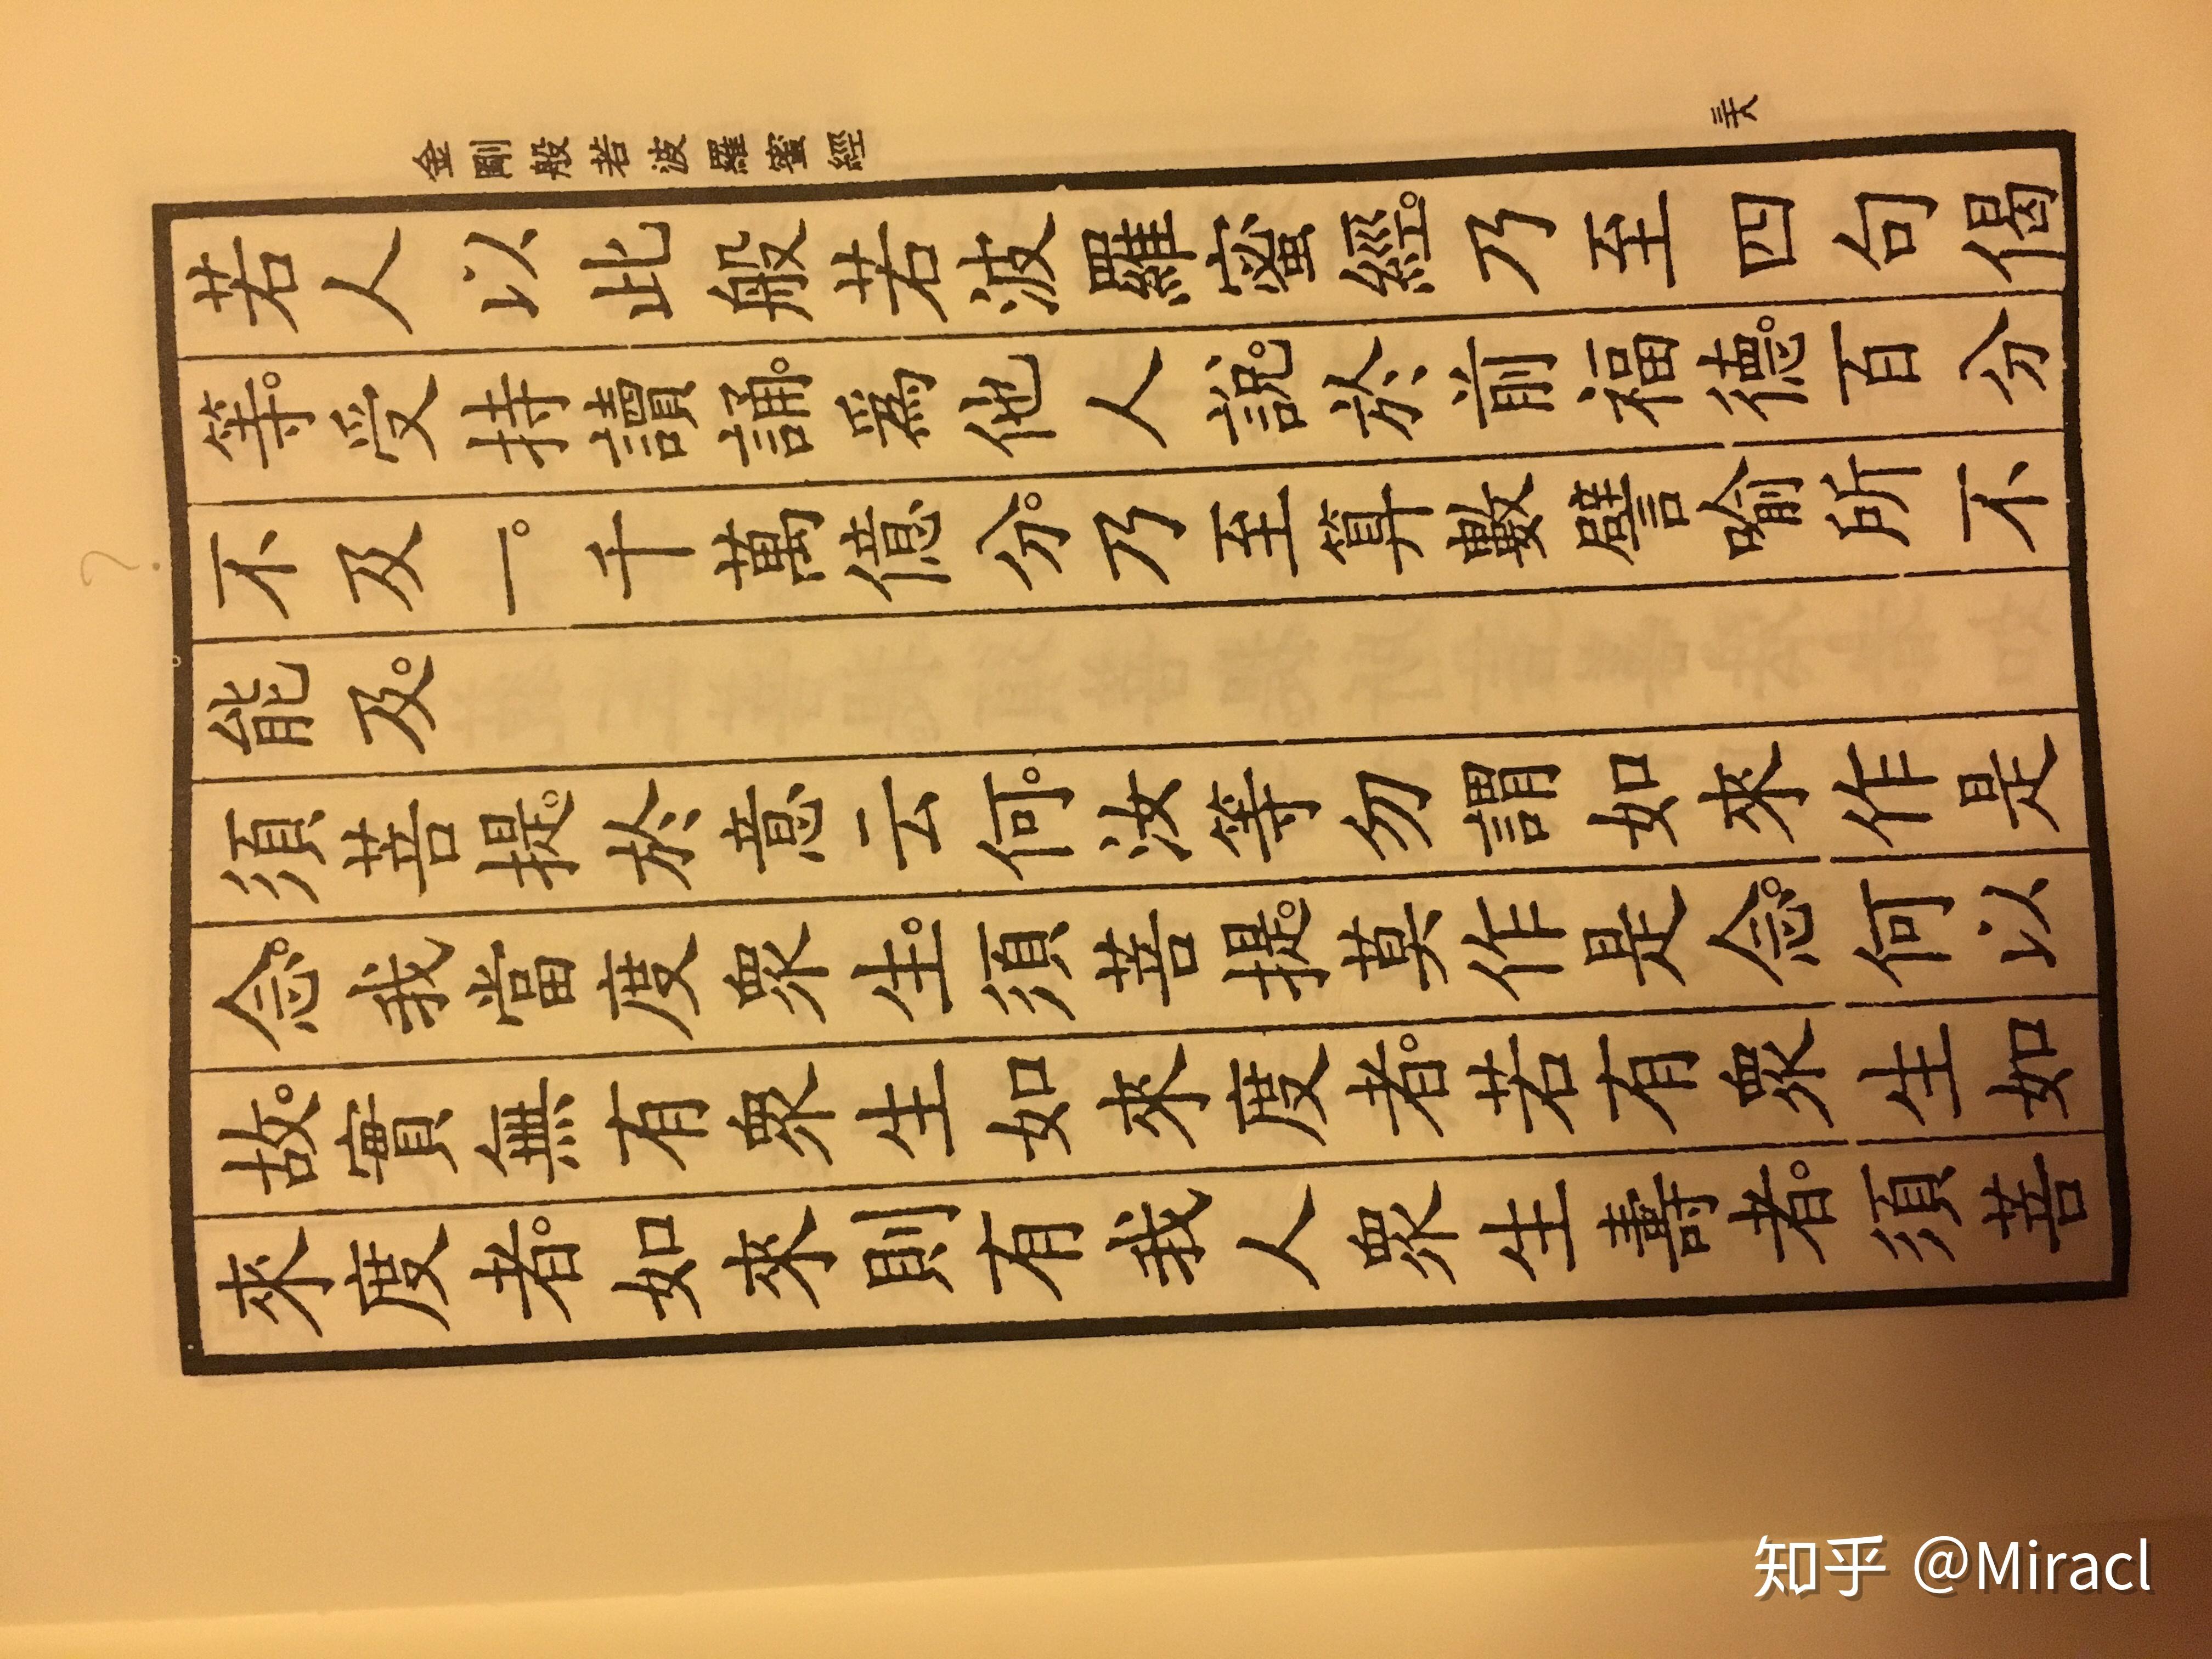 金剛般若波羅蜜經
若人以此般若波羅蜜經。乃至四句偈
等。受持讀誦。爲他人說。於前福德。百分
不及一。千萬億分。乃至算數譬喻所不
能及。
須菩提。於意云何。汝等勿謂如來作是
念。我當度眾生。須菩提。莫作是念。何以
故。實無有眾生如來度者。若有眾生如
來度者。如來則有我人眾生壽者。須菩
?
知乎 @Miracl